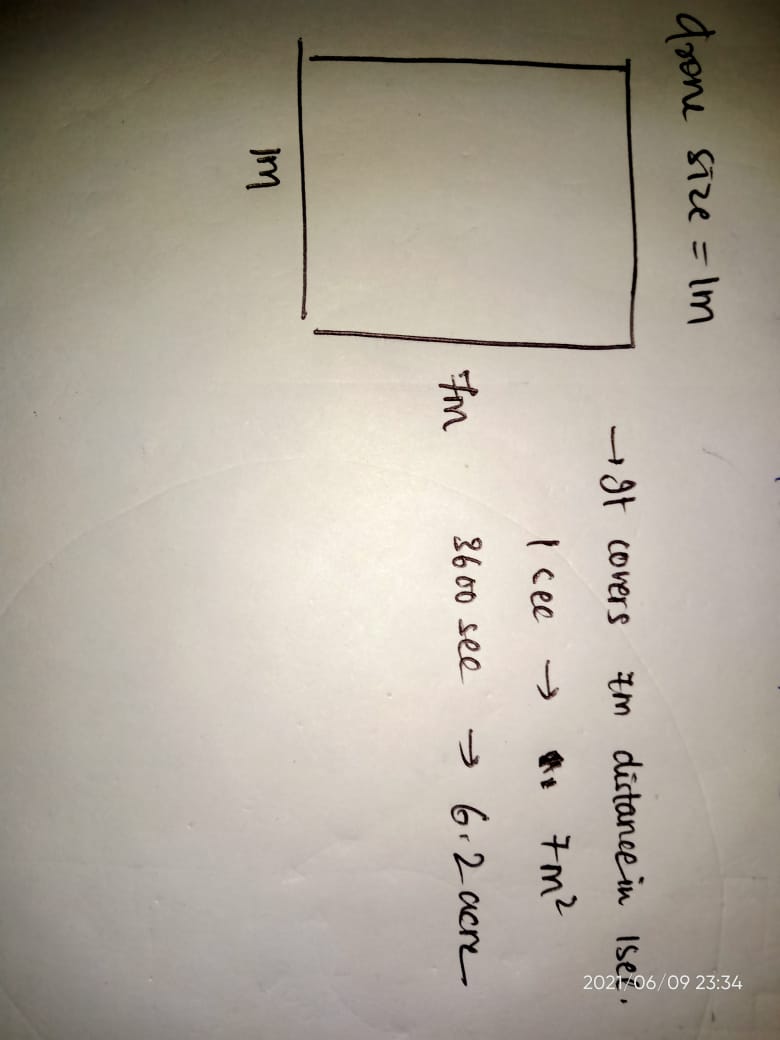 drone size = 1m
→ It covers 7m distance in 1sec.
1 sec → 7m²
7m
3600 sec → 6.2 acre
1m
2021/06/09 23:34